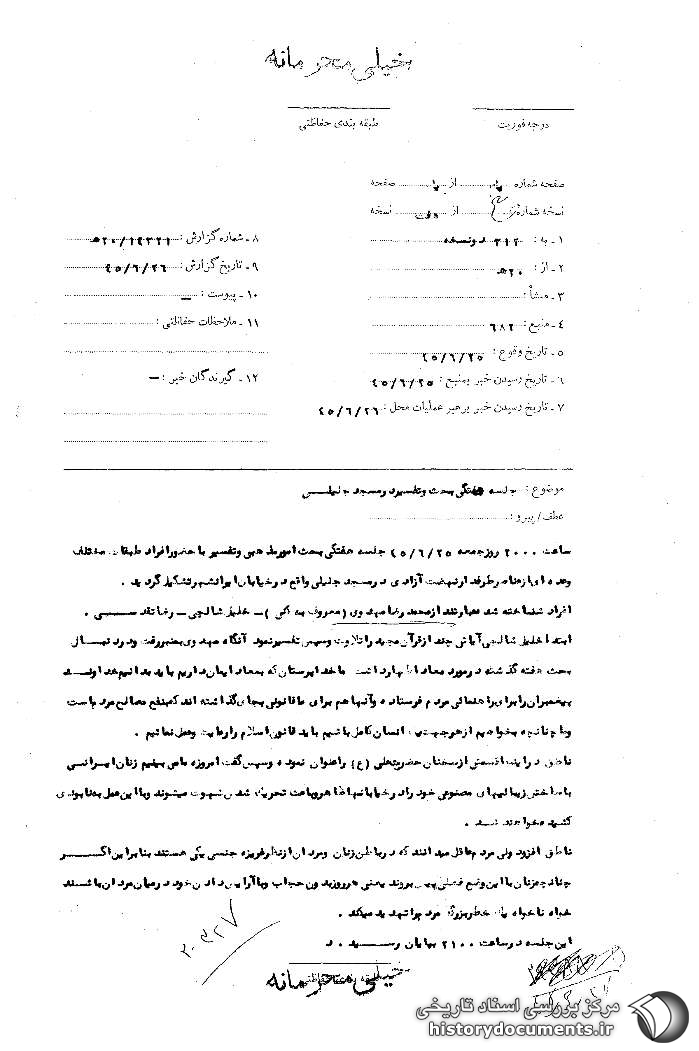 خیلی محرمانه
درجه فوریت
طبقه بندی حفاظتی
صفحه شماره از صفحه
نسخه شماره از نسخه
۱ـ به : ۳۱۲ دو نسخه
۲ـ از : ۲۰ ه‍
۳ـ منشأ :
۴ـ منبع : ۶۸۲
۵ـ تاریخ وقوع : ۴۵/۶/۲۵
۶ـ تاریخ رسیدن خبر بمنبع : ۴۵/۶/۲۵
۷ـ تاریخ رسیدن خبر برهبر عملیات محل : ۴۵/۶/۲۶
۸ـ شماره گزارش : ۲۰/۱۹۳۲۱ ه‍
۹ـ تاریخ گزارش : ۴۵/۶/۲۶
۱۰ـ پیوست : ـ
۱۱ـ ملاحظات حفاظتی :
۱۲ـ گیرندگان خبر : ـ
موضوع : جلسه هفتگی بحث و تفسیر در مسجد جلیلی
عطف / پیرو :
ساعت ۲۰۰۰ روز جمعه ۴۵/۶/۲۵ جلسه هفتگی بحث امور مذهبی و تفسیر با حضور افراد طبقات مختلف
و عده ای از عناصر طرفدار نهضت آزادی در مسجد جلیلی واقع در خیابان ایرانشهر تشکیل گردید .
افراد شناخته شده عبارتند از محمدرضا مهدوی (معروف به کنی) ـ خلیل شالچی ـ رضا تقدسی .
ابتدا خلیل شالچی آیاتی چند از قرآن مجید را تلاوت و سپس تفسیر نمود آنگاه مهدوی بمنبر رفت و در دنبال
بحث هفته گذشته در مورد معاد اظهار داشت ما خداپرستان که بمعاد ایمان داریم باید بدانیم خداوند
پیغمبران را برای راهنمائی مردم فرستاده و آنها هم برای ما قانونی بجای گذاشته اند که بنفع مصالح مردم است
و ما چنانچه بخواهیم از هر جهت انسان کامل باشیم باید قانون اسلام را رعایت و عمل نمائیم .
ناطق در اینجا قسمتی از سخنان حضرت علی (ع) را عنوان نموده و سپس گفت امروزه ما می بینیم زنان ایرانی
با ساختن زیبائیهای مصنوعی خود را در خیابانها ظاهر و باعث تحریک شدن شهوت میشوند و با این عمل بنابودی
کشیده خواهند شد .
ناطق افزود ولی مردم عاقل میدانند که در باطن زنان و مردان از نظر غریزه جنسی یکی هستند بنابراین اگر
چنانچه زنان با این وضع فعلی پیش بروند یعنی هر روز بدون حجاب و با آرایش دادن خود در میان مردان باشند
خواه ناخواه یک خطر بزرگ مردم را تهدید میکند .
این جلسه در ساعت ۲۱۰۰ بپایان رسید . د
۳۰۳۲۷
خیلی محرمانه
مرکز بررسی اسناد تاریخی
historydocuments.ir